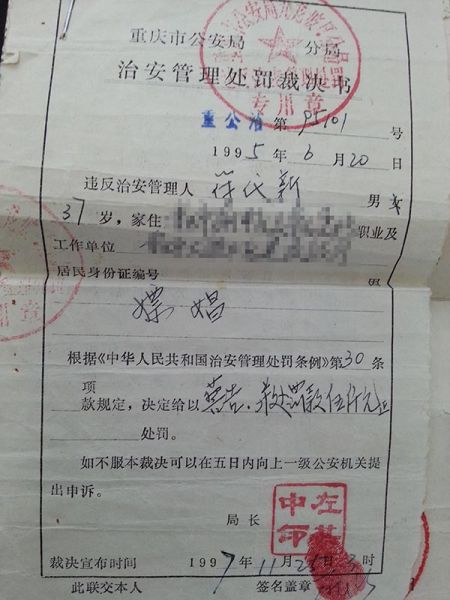 重庆市公安局 分局
治安管理处罚裁决书
专用章
重公治第95101号
1995年6月20日
违反治安管理人 代新 男女
37岁,家住 职业及
工作单位
居民身份证编号
嫖娼
根据《中华人民共和国治安管理处罚条例》第30条
项
款规定,决定给以 警告.并处罚款伍仟元正
处罚。
如不服本裁决可以在五日内向上一级公安机关提
出申诉。
局长
裁决宣布时间 1997年11月2 时
此联交本人 签名盖章